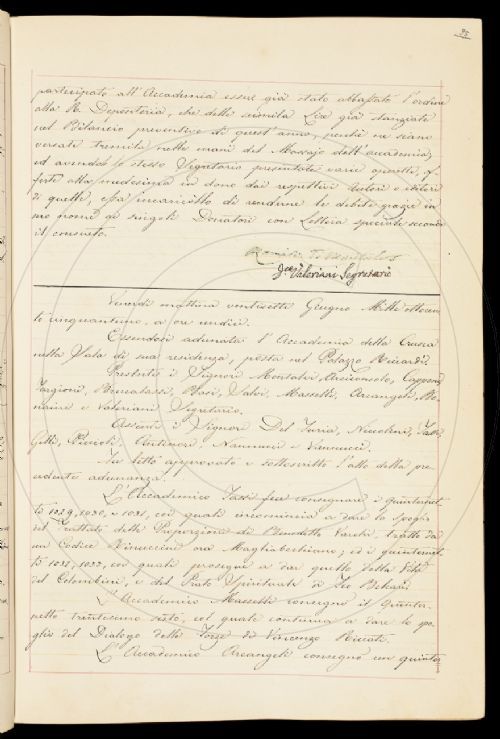 95
partecipato all'Accademia essere già stato abbassato l'ordine
alla R. Depositeria, che delle seimila Lire già stanziate
nel Bilancio preventivo di quest'anno, sentii ne siano
versate tremila nelle mani del Massajo dell'accademia,
ed avendo lo stesso Segretario presentate varie operette, of-
ferte alla medesima in dono dai respettivi autori o editori
di quelle, essa incaricollo di renderne le debite grazie in
suo nome ai singoli Donatori con Lettera speciale secondo
il consueto.
Valeriani Segretario
Venerdì mattina ventisette Giugno Mille ottocen-
to cinquantuno, a ore undici.
Essendosi adunata l'Accademia della Crusca
nella Sala di sua residenza, posta nel Palazzo Riccardi,
Presenti i Signori Montalvi, Capponi,
Targioni, Bencatassi, Salvi, Masselli, Arcangeli, Bo-
nanni e Valeriani Segretario.
Assenti i Signori Del Furia, Niccolini,
Puccioli, Antinori, Nannucci e Vannucci.
Fu letto approvato e sottoscritto l'atto della pre-
cedente adunanza.
L'Accademico Tassi fece consegnare i quinternet-
ti 1029, 1030, e 1031, coi quali incomincia a dare lo spoglio
del Trattato delle Proporzioni di Benedetto Varchi, tratto da
un Codice Rinuccini ora Magliabechiano; ed i quinternet-
ti 1032, 1033, coi quali prosegue a dar quello della Vita
del Colombini, e del Prato Spirituale di Feo Belcari.
L'Accademico Masselli consegnò il Quinter-
netto trentesimo sesto, col quale continua a dare lo spo-
glio del Dialogo delle Forze di Vincenzo Riccati.
L'Accademico Arcangeli consegnò un quinter-